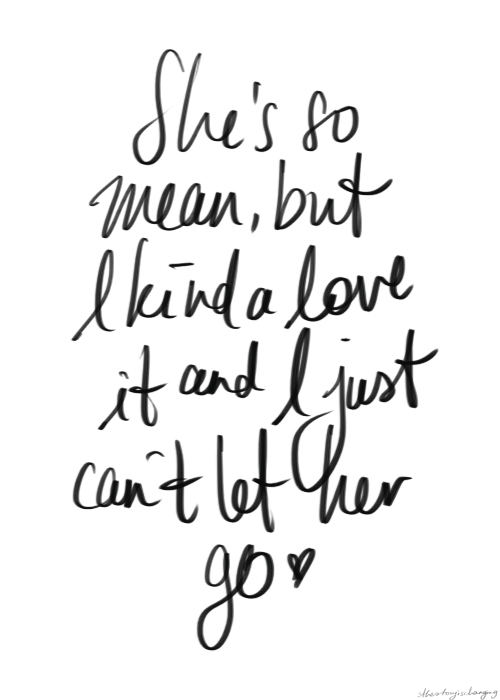 She's so
mean, but
I kinda love
it and I just
can't let her
go ♥